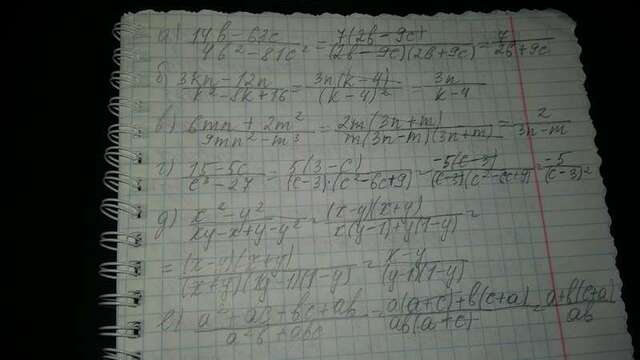 а) 14b - 63c / 4b² - 81c² = 7(2b - 9c) / (2b - 9c)(2b + 9c) = 7 / 2b + 9c
б) 3kn - 12n / k² - 8k + 16 = 3n(k - 4) / (k - 4)² = 3n / k - 4
в) 6mn + 2m² / 9mn² - m³ = 2m(3n + m) / m(3n - m)(3n + m) = 2 / 3n - m
г) 15 - 5c / c³ - 27 = 5(3 - c) / (c - 3)·(c² - 6c + 9) = -5(c - 3) / (c - 3)(c² - 6c + 9) = -5 / (c - 3)²
д) x² - y² / xy - x + y - y² = (x - y)(x + y) / x(y - 1) + y(1 - y) =
= (x - y)(x + y) / (x + y)(y - 1)(1 - y) = x - y / (y - 1)(1 - y)
е) a² + ac + bc + ab / a²b + abc = a(a + c) + b(c + a) / ab(a + c) = a + b(c + a) / ab